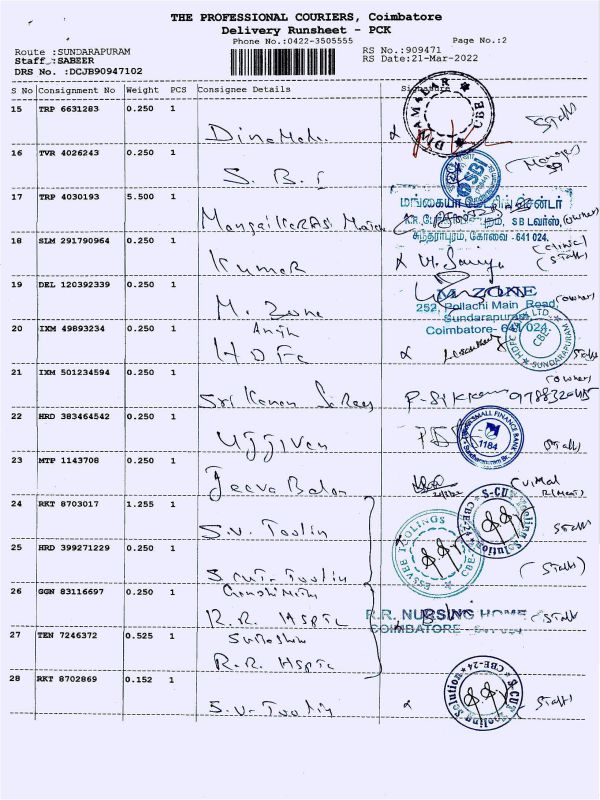 THE PROFESSIONAL COURIERS, Coimbatore
Delivery Runsheet - PCK
Phone No.:0422-3505555 Page No.:2
Route :SUNDARAPURAM RS No.:909471
Staff :SABEER RS Date:21-Mar-2022
DRS No. :DCJB90947102
S No Consignment No Weight PCS Consignee Details Signature
15 TRP 6631283 0.250 1
DINAMALAR CBE
Staff
16 TVR 4026243 0.250 1
S.B.I SBI
Manager
17 TRP 4030193 5.500 1
சென்டர்
SB டவர்ஸ், (owner)
சுந்தராபுரம், கோவை - 641 024.
18 SLM 291790964 0.250 1
Kumar
(Staff)
19 DEL 120392339 0.250 1
M. Zone M. ZONE (owner)
252, Pollachi Main Road,
Sundarapuram,
Coimbatore- 641 024.
20 IXM 49893234 0.250 1
HDFC HDFC LTD. CBE SUNDARAPURAM
Staff
21 IXM 501234594 0.250 1
(owner)
22 HRD 383464542 0.250 1
Ujjivan SMALL FINANCE BANK 1184
Staff
23 MTP 1143708 0.250 1
Jeeva Balan (Vimal
24 RKT 8703017 1.255 1
S.V. Toolin S-CUT Tooling Solution CBE-24 Staff
25 HRD 399271229 0.250 1
S cut-Toolin ESSVEE TOOLINGS CBE- (Staff)
26 GGN 83116697 0.250 1
R.R. Hsptl R.R. NURSING HOME Staff
COIMBATORE - 641 024
27 TEN 7246372 0.525 1
R.R. Hsptl
28 RKT 8702869 0.152 1
S.V-Toolin S-CUT Tooling Solution CBE-24 Staff